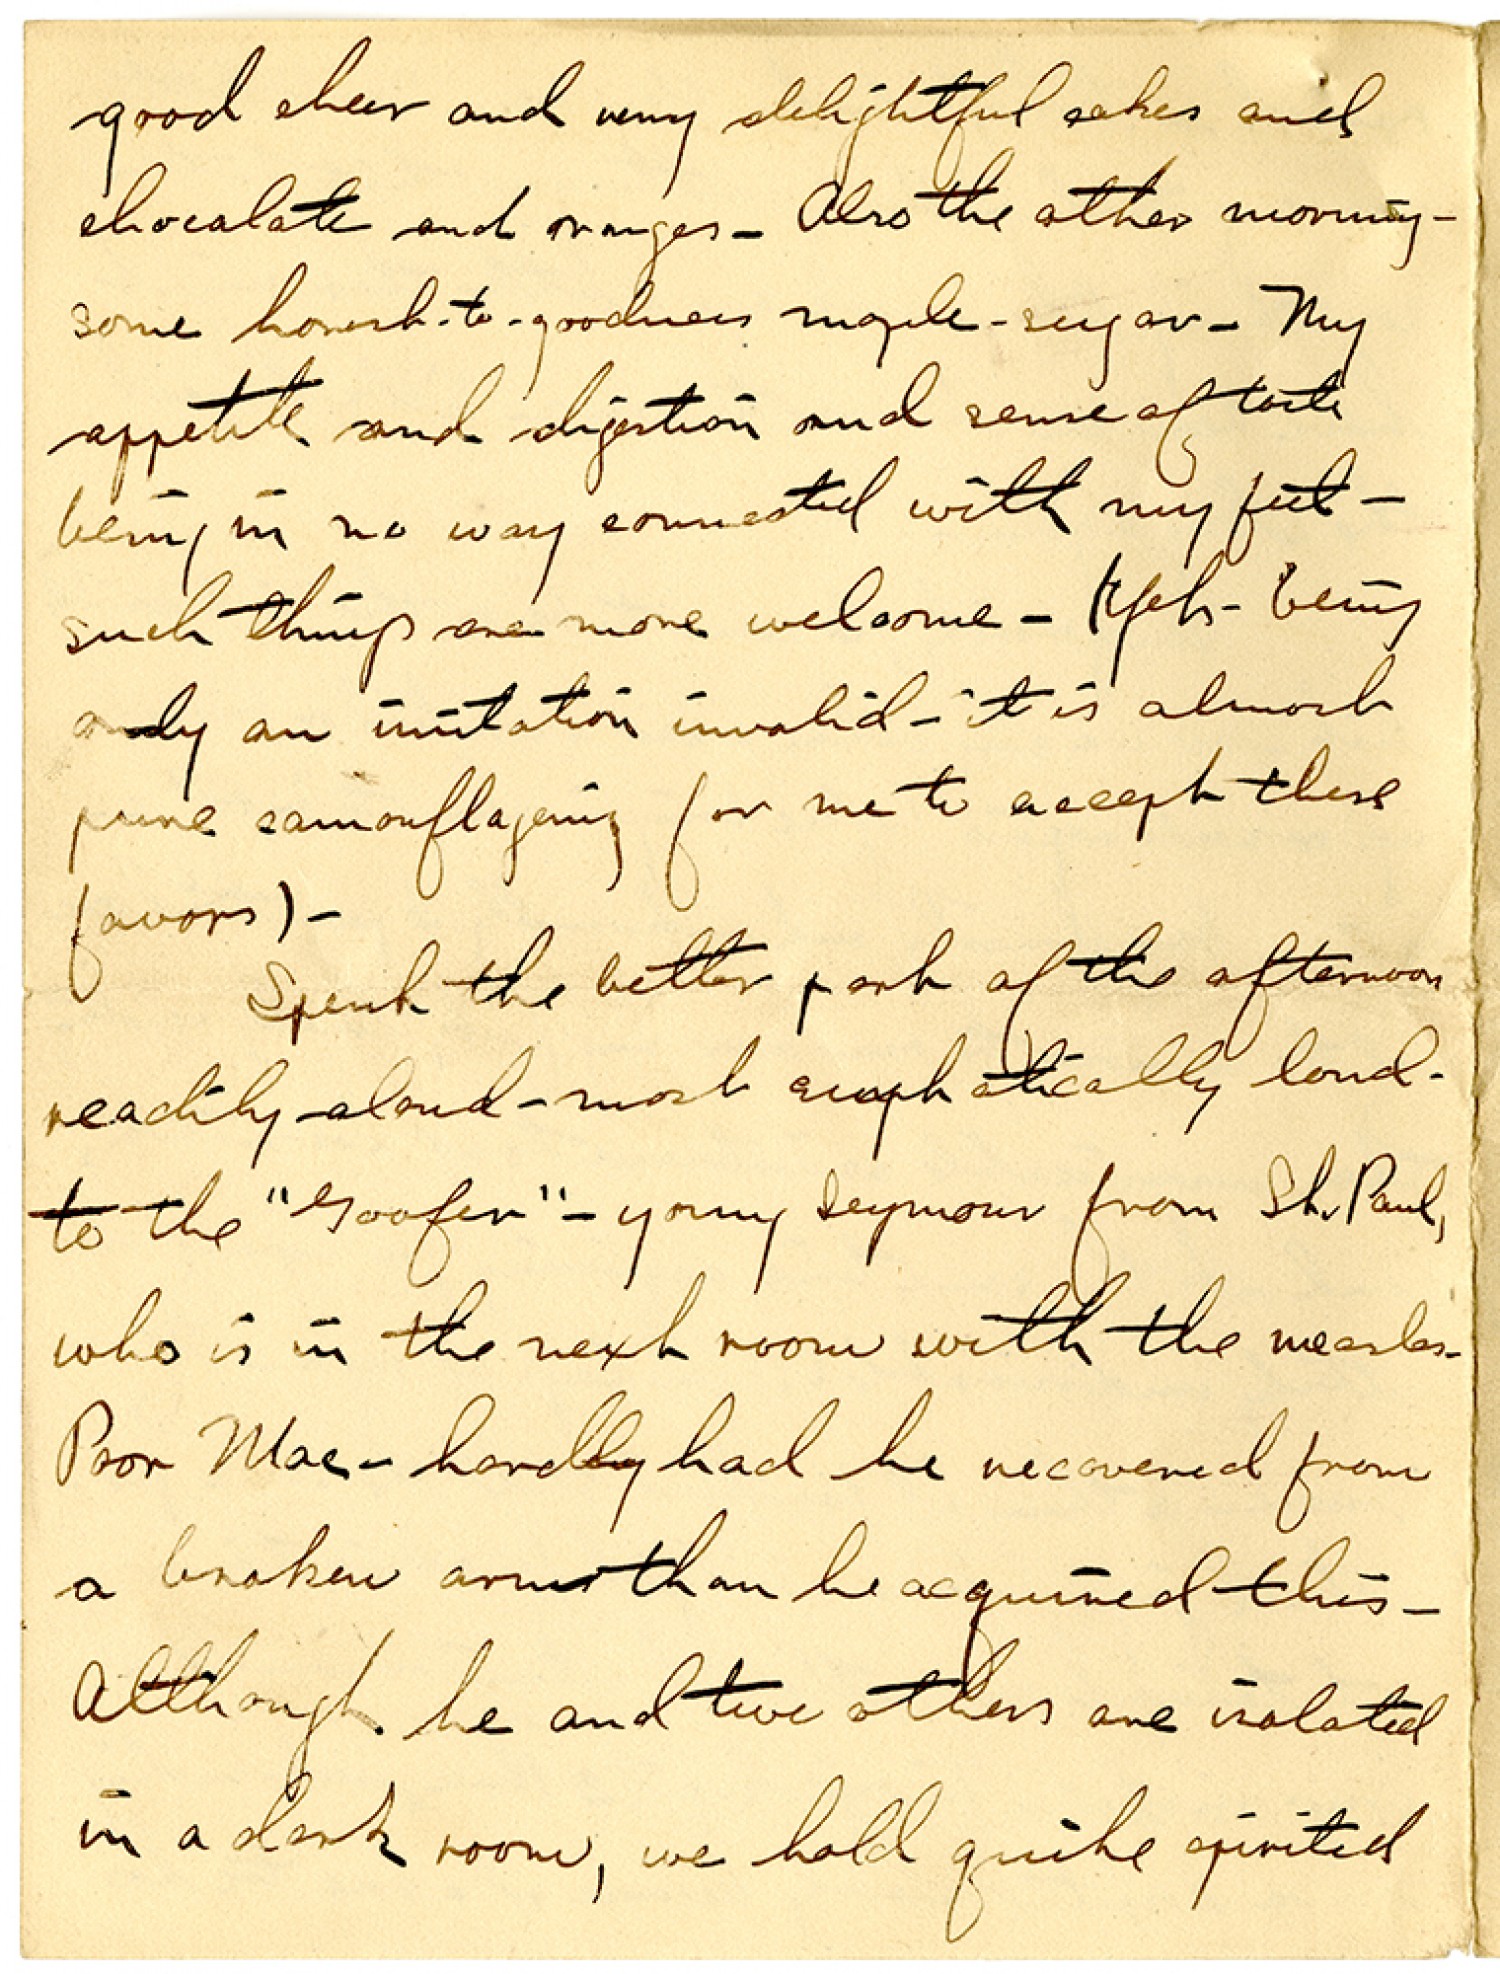 good cheer and very delightful cakes and
chocalate and oranges - Also the other morning -
some honest-to-goodness maple-sugar - My
appetite and digestion and sense of taste
being in no way connected with my feet -
such things are more welcome - ( - being
only an imitation invalid - it is almost
pure camouflageing for me to accept these
favors) -
Spent the better part of the afternoon
readily aloud - most emphatically loud -
to the "Goofer" - young Seymour from St. Paul,
who is in the next room with the measles -
Poor Mac - hardly had he recovered from
a broken arm than he acquired this -
Although he and two others are isolated
in a dark room, we hold quite spirited